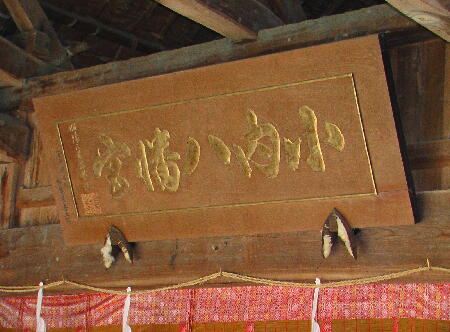 小内八幡宮